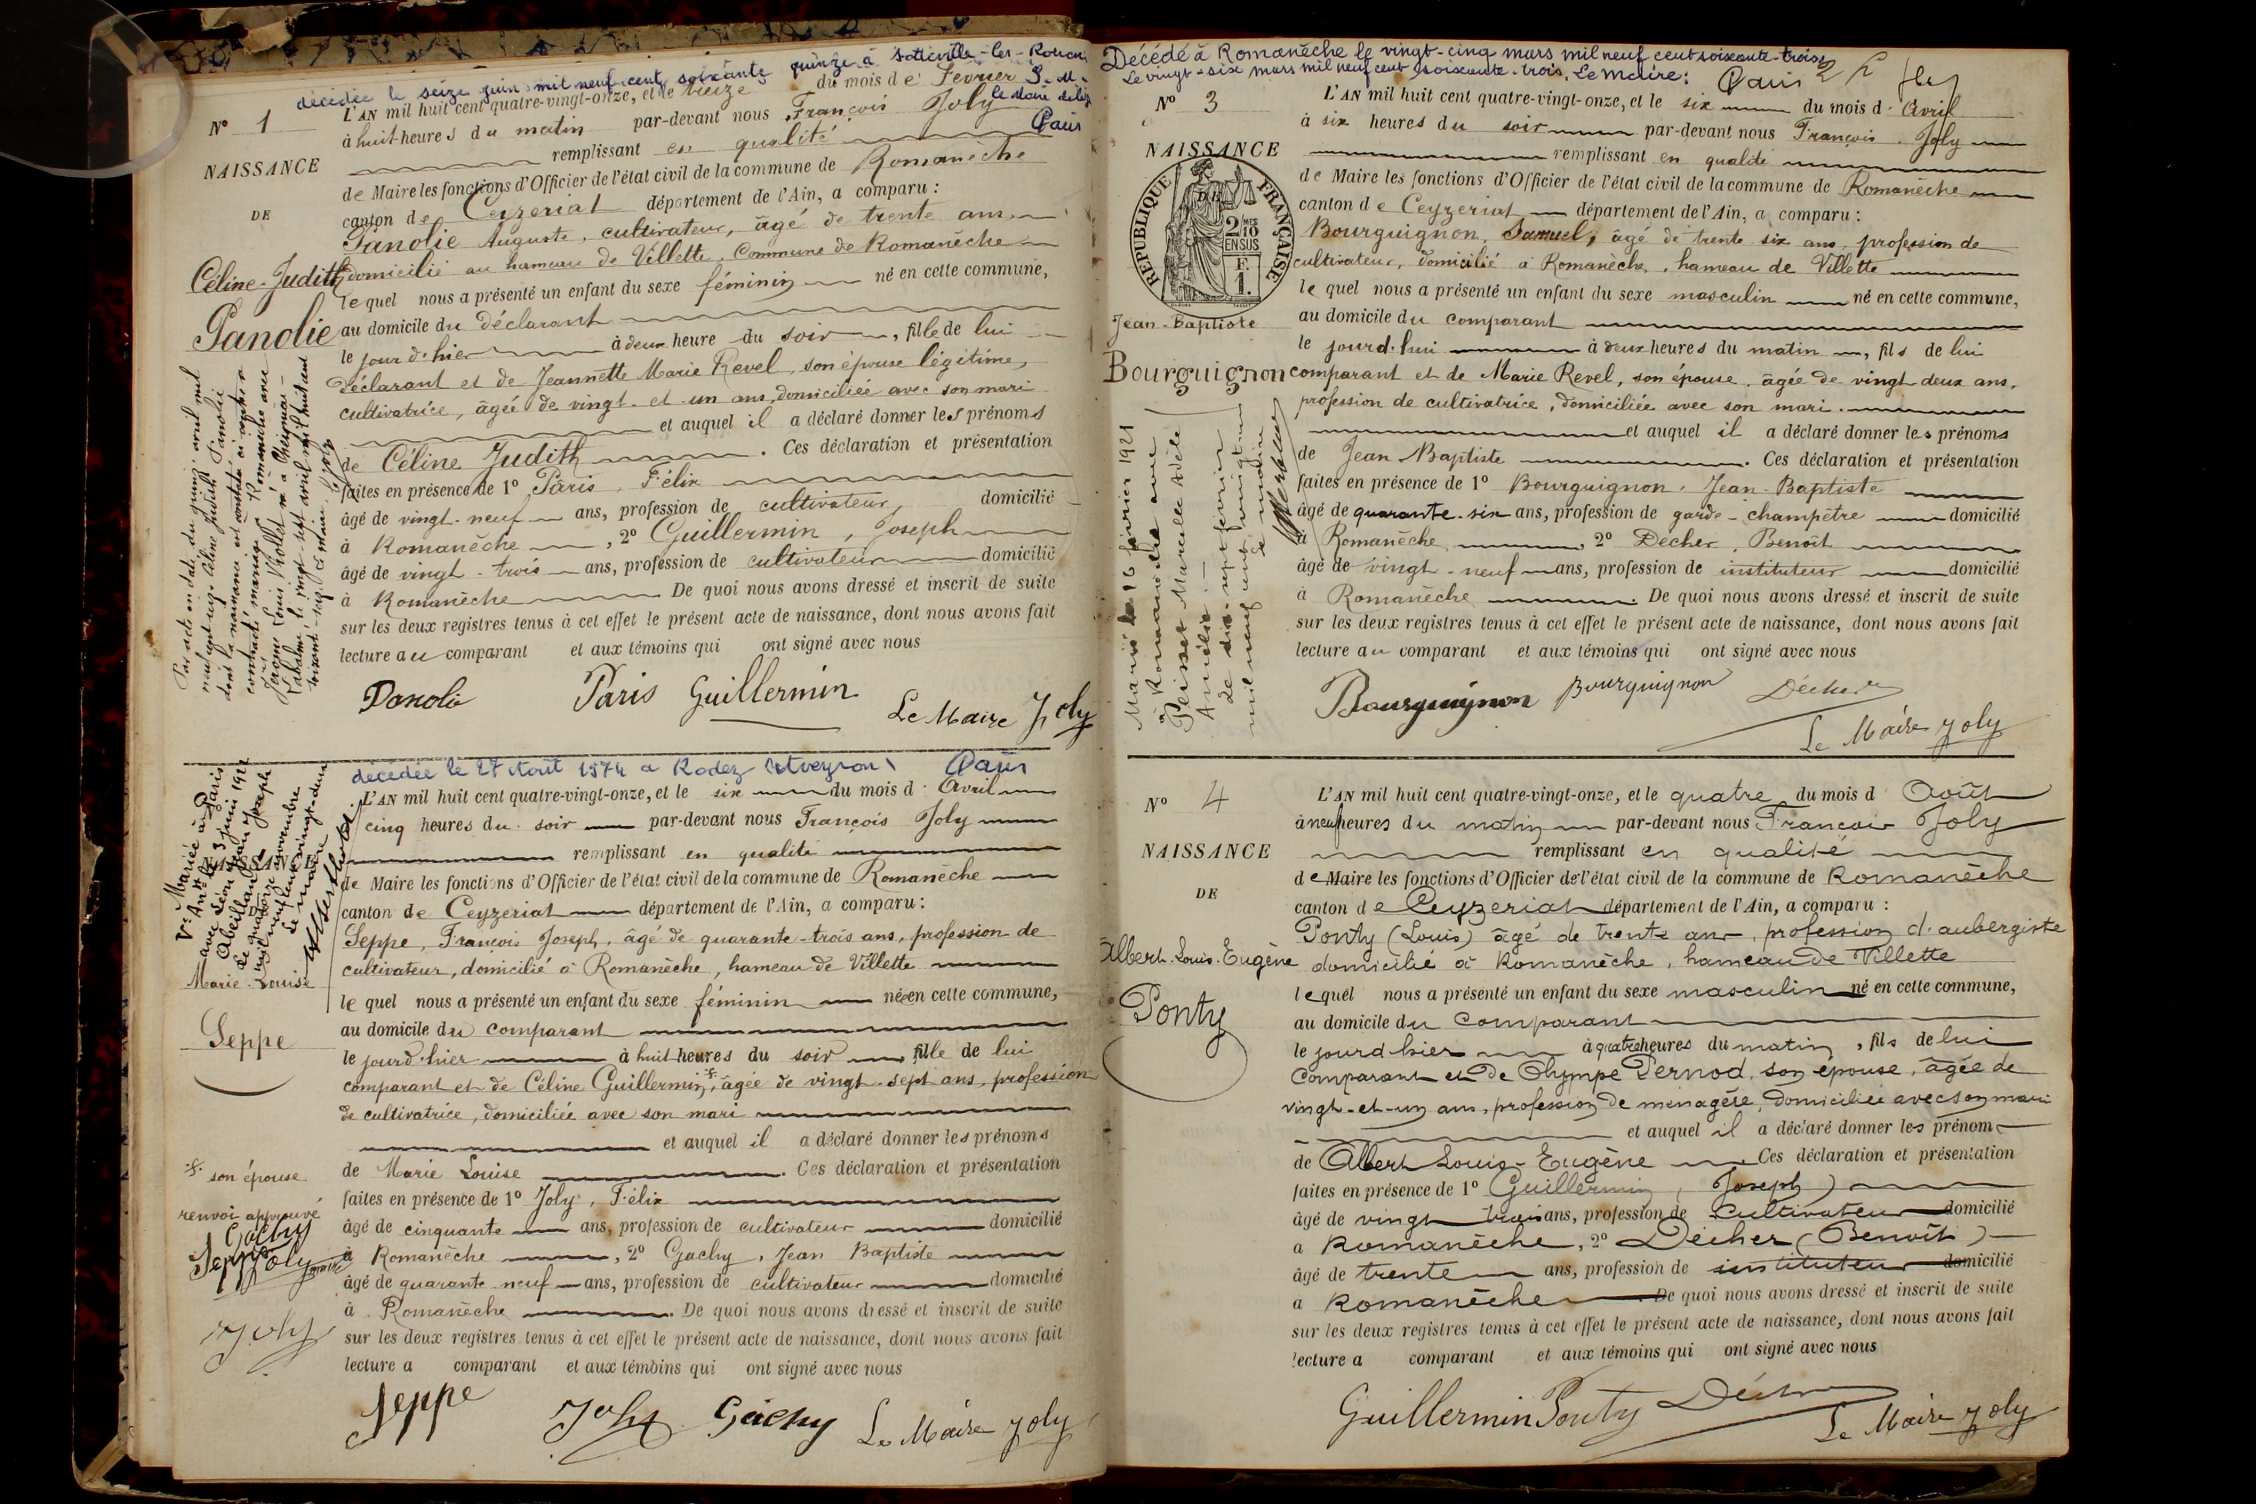 décédée le seize juin mil neuf cent soixante quinze à Sotteville-les-Rouen
S. M.
Le Maire
Paris
N° 1
NAISSANCE
DE
Céline-Judith
Panolie
L'AN mil huit cent quatre-vingt-onze, et le treize du mois de Février
à huit heures du matin par-devant nous François Joly
remplissant en qualité
de Maire les fonctions d'Officier de l'état civil de la commune de Romanèche
canton de Ceyzeriat département de l'Ain, a comparu :
Panolie Auguste, cultivateur, âgé de trente ans
domicilié au hameau de Villette, Commune de Romanèche
lequel nous a présenté un enfant du sexe féminin né en cette commune,
au domicile du déclarant
le jour d'hier à deux heure du soir, fille de lui
déclarant et de Jeannette Marie Revel, son épouse légitime,
cultivatrice, âgée de vingt-et-un ans, domiciliée avec son mari
et auquel il a déclaré donner les prénoms
de Céline Judith. Ces déclaration et présentation
faites en présence de 1° Paris, Félix
âgé de vingt-neuf ans, profession de cultivateur, domicilié
à Romanèche, 2° Guillermin, Joseph
âgé de vingt-trois ans, profession de cultivateur domicilié
à Romanèche De quoi nous avons dressé et inscrit de suite
sur les deux registres tenus à cet effet le présent acte de naissance, dont nous avons fait
lecture au comparant et aux témoins qui ont signé avec nous
Par acte en date du quinze avril mil
neuf cent onze Céline Judith Panolie
dont la naissance est constatée ci contre a
contracté mariage à Romanèche avec
Jérôme Louis Viollet né à
le vingt-sept avril mil huit cent
Le maire Joly
Panolie Paris Guillermin
Le Maire Joly
décédée le 27 Août 1974 à Rodez (Aveyron) Paris
Mariée à Paris
le 3 Juin 1922
avec Léon Jean Joseph
Abeillan
Le quatorze novembre
mil neuf cent vingt-deux
Le maire
NAISSANCE
Marie-Louise
Seppe
L'AN mil huit cent quatre-vingt-onze, et le six du mois d'Avril
cinq heures du soir par-devant nous François Joly
remplissant en qualité
de Maire les fonctions d'Officier de l'état civil de la commune de Romanèche
canton de Ceyzeriat département de l'Ain, a comparu :
Seppe, François Joseph, âgé de quarante-trois ans, profession de
cultivateur, domicilié à Romanèche, hameau de Villette
lequel nous a présenté un enfant du sexe féminin née en cette commune,
au domicile du comparant
le jour d'hier à huit heures du soir, fille de lui
comparant et de Céline Guillermin, âgée de vingt-sept ans, profession
de cultivatrice, domiciliée avec son mari
et auquel il a déclaré donner les prénoms
de Marie Louise. Ces déclaration et présentation
faites en présence de 1° Joly, Félix
âgé de cinquante ans, profession de cultivateur domicilié
à Romanèche, 2° Gachy, Jean Baptiste
âgé de quarante neuf ans, profession de cultivateur domicilié
à Romanèche. De quoi nous avons dressé et inscrit de suite
sur les deux registres tenus à cet effet le présent acte de naissance, dont nous avons fait
lecture a comparant et aux témoins qui ont signé avec nous
son épouse
renvoi approuvé
Gachy
Seppe Joly
Joly
Seppe Joly Gachy Le Maire Joly
Décédé à Romanèche le vingt-cinq mars mil neuf cent soixante-trois
Le vingt-six mars mil neuf cent soixante-trois, Le Maire : Paris
N° 3
NAISSANCE
DE
RÉPUBLIQUE FRANÇAISE
2/10
EN SUS
F.
1.
Jean-Baptiste
Bourguignon
L'AN mil huit cent quatre-vingt-onze, et le six du mois d'Avril
à six heures du soir par-devant nous François Joly
remplissant en qualité
de Maire les fonctions d'Officier de l'état civil de la commune de Romanèche
canton de Ceyzeriat département de l'Ain, a comparu :
Bourguignon, Samuel, âgé de trente six ans, profession de
cultivateur, domicilié à Romanèche, hameau de Villette
lequel nous a présenté un enfant du sexe masculin né en cette commune,
au domicile du comparant
le jourd'hui à deux heures du matin, fils de lui
comparant et de Marie Revel, son épouse, âgée de vingt deux ans,
profession de cultivatrice, domiciliée avec son mari.
et auquel il a déclaré donner les prénoms
de Jean Baptiste. Ces déclaration et présentation
faites en présence de 1° Bourguignon, Jean-Baptiste
âgé de quarante-six ans, profession de garde-champêtre domicilié
à Romanèche, 2° Décher, Benoît
âgé de vingt-neuf ans, profession de instituteur domicilié
à Romanèche. De quoi nous avons dressé et inscrit de suite
sur les deux registres tenus à cet effet le présent acte de naissance, dont nous avons fait
lecture au comparant et aux témoins qui ont signé avec nous
Marié le 16 février 1921
à Romanèche avec
Peisset Marcelle Adèle
Amélie.
Le dix-sept février
mil neuf cent vingt-un
Le maire
Bourguignon Bourguignon Décher
Le Maire Joly
N° 4
NAISSANCE
DE
Albert-Louis-Eugène
Ponty
L'AN mil huit cent quatre-vingt-onze, et le quatre du mois d'Août
à neuf heures du matin par-devant nous François Joly
remplissant en qualité
de Maire les fonctions d'Officier de l'état civil de la commune de Romanèche
canton de Ceyzeriat département de l'Ain, a comparu :
Ponty (Louis) âgé de trente ans, profession d'aubergiste
domicilié à Romanèche, hameau de Villette
lequel nous a présenté un enfant du sexe masculin né en cette commune,
au domicile du comparant
le jour d'hier à quatre heures du matin, fils de lui
comparant et de Olympe Pernod, son épouse, âgée de
vingt-et-un ans, profession de ménagère, domiciliée avec son mari
et auquel il a déclaré donner les prénoms
de Albert-Louis-Eugène. Ces déclaration et présentation
faites en présence de 1° Guillermin (Joseph)
âgé de vingt trois ans, profession de cultivateur domicilié
à Romanèche, 2° Décher (Benoît)
âgé de trente ans, profession de instituteur domicilié
à Romanèche. De quoi nous avons dressé et inscrit de suite
sur les deux registres tenus à cet effet le présent acte de naissance, dont nous avons fait
lecture a comparant et aux témoins qui ont signé avec nous
Guillermin Ponty Décher
Le Maire Joly